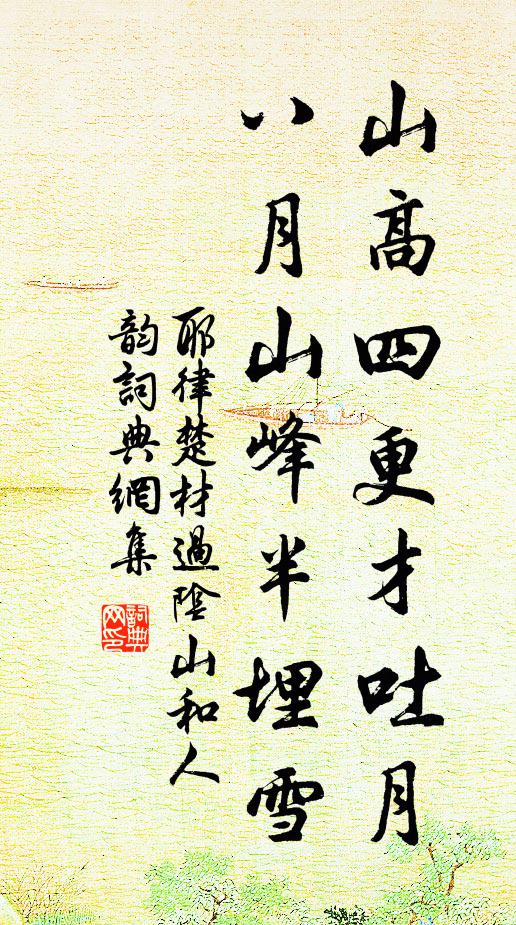 山高四更才吐月
八月山峰半埋雪
耶律楚材過陰山和人
韵詞典網集
詞典
网印